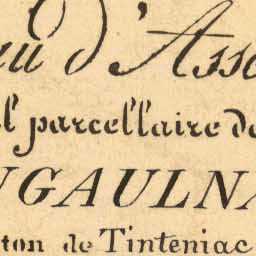 au d'Asse
l parcellaire de
UGAULNA
ton de Tinteniac